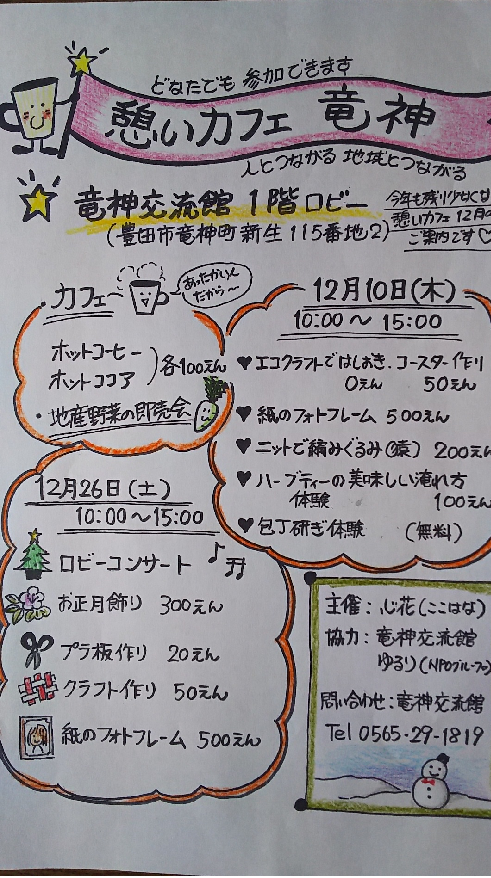 どなたでも 参加できます
憩いカフェ 竜神
人とつながる 地域とつながる
竜神交流館 1階ロビー
(豊田市竜神町新生115番地2)
今年も残り少なく
憩いカフェ 12月
ご案内です♡
カフェ
あったかいんだから〜
ホットコーヒー
ホットココア
各100えん
・地産野菜の即売会
12月10日(木)
10:00〜15:00
♥エコクラフトではしおき、コースター作り
0えん 50えん
♥紙のフォトフレーム 500えん
♥ニットで編みぐるみ(猿) 200えん
♥ハーブティーの美味しい淹れ方
体験 100えん
♥包丁研ぎ体験 (無料)
12月26日(土)
10:00〜15:00
ロビーコンサート
お正月飾り 300えん
プラ板作り 20えん
クラフト作り 50えん
紙のフォトフレーム 500えん
主催:心花(ここはな)
協力:竜神交流館
ゆるり(NPOブルーフ
問い合わせ:竜神交流館
Tel 0565-29-1819